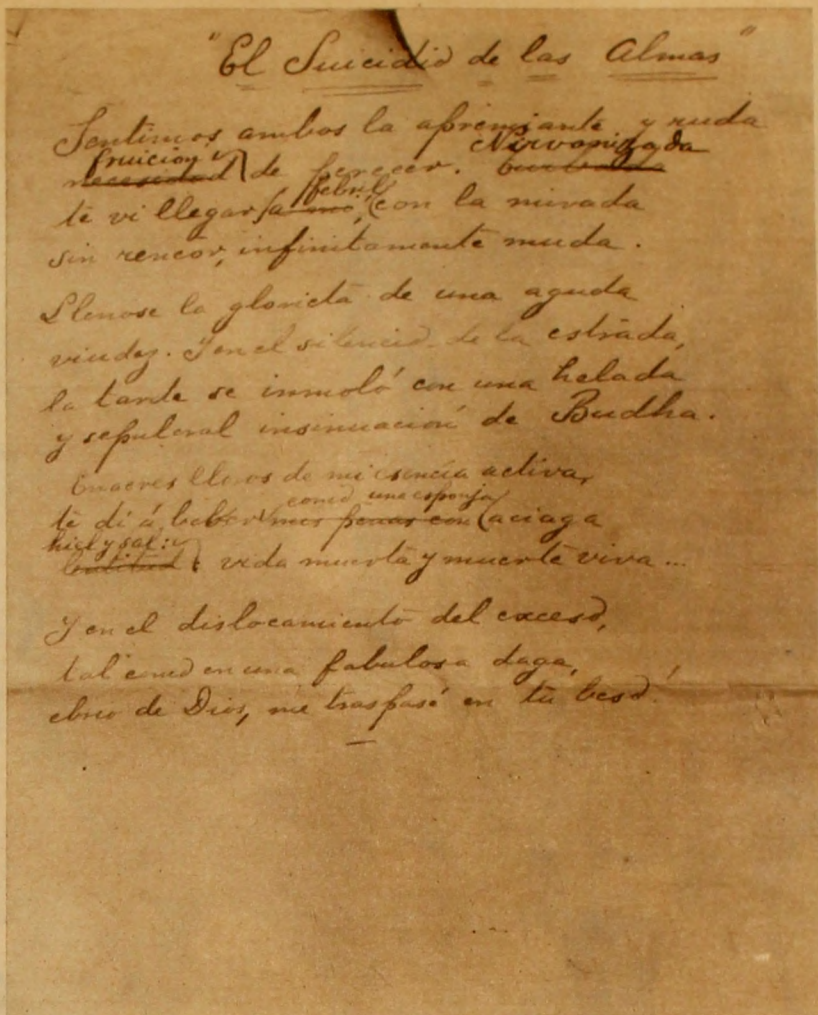 "El Suicidio de las Almas"
Sentimos ambos la apremiante y ruda
fruicion Nirvanizada
necesidad de perecer.
febril
te vi llegar a mi, con la mirada
sin rencor, infinitamente muda.
Llenose la glorieta de una aguda
viudez. Y en el silencio de la estrada,
la tarde se inmoló con una helada
y sepulcral insinuación de Budha.
En acres lloros de mi esencia activa,
como una esponja
te di á beber mis penas con aciaga
hiel y sal:
vida muerta y muerte viva...
Y en el dislocamiento del exceso,
tal como en una fabulosa daga,
ebrio de Dios, me traspasé en tu beso!